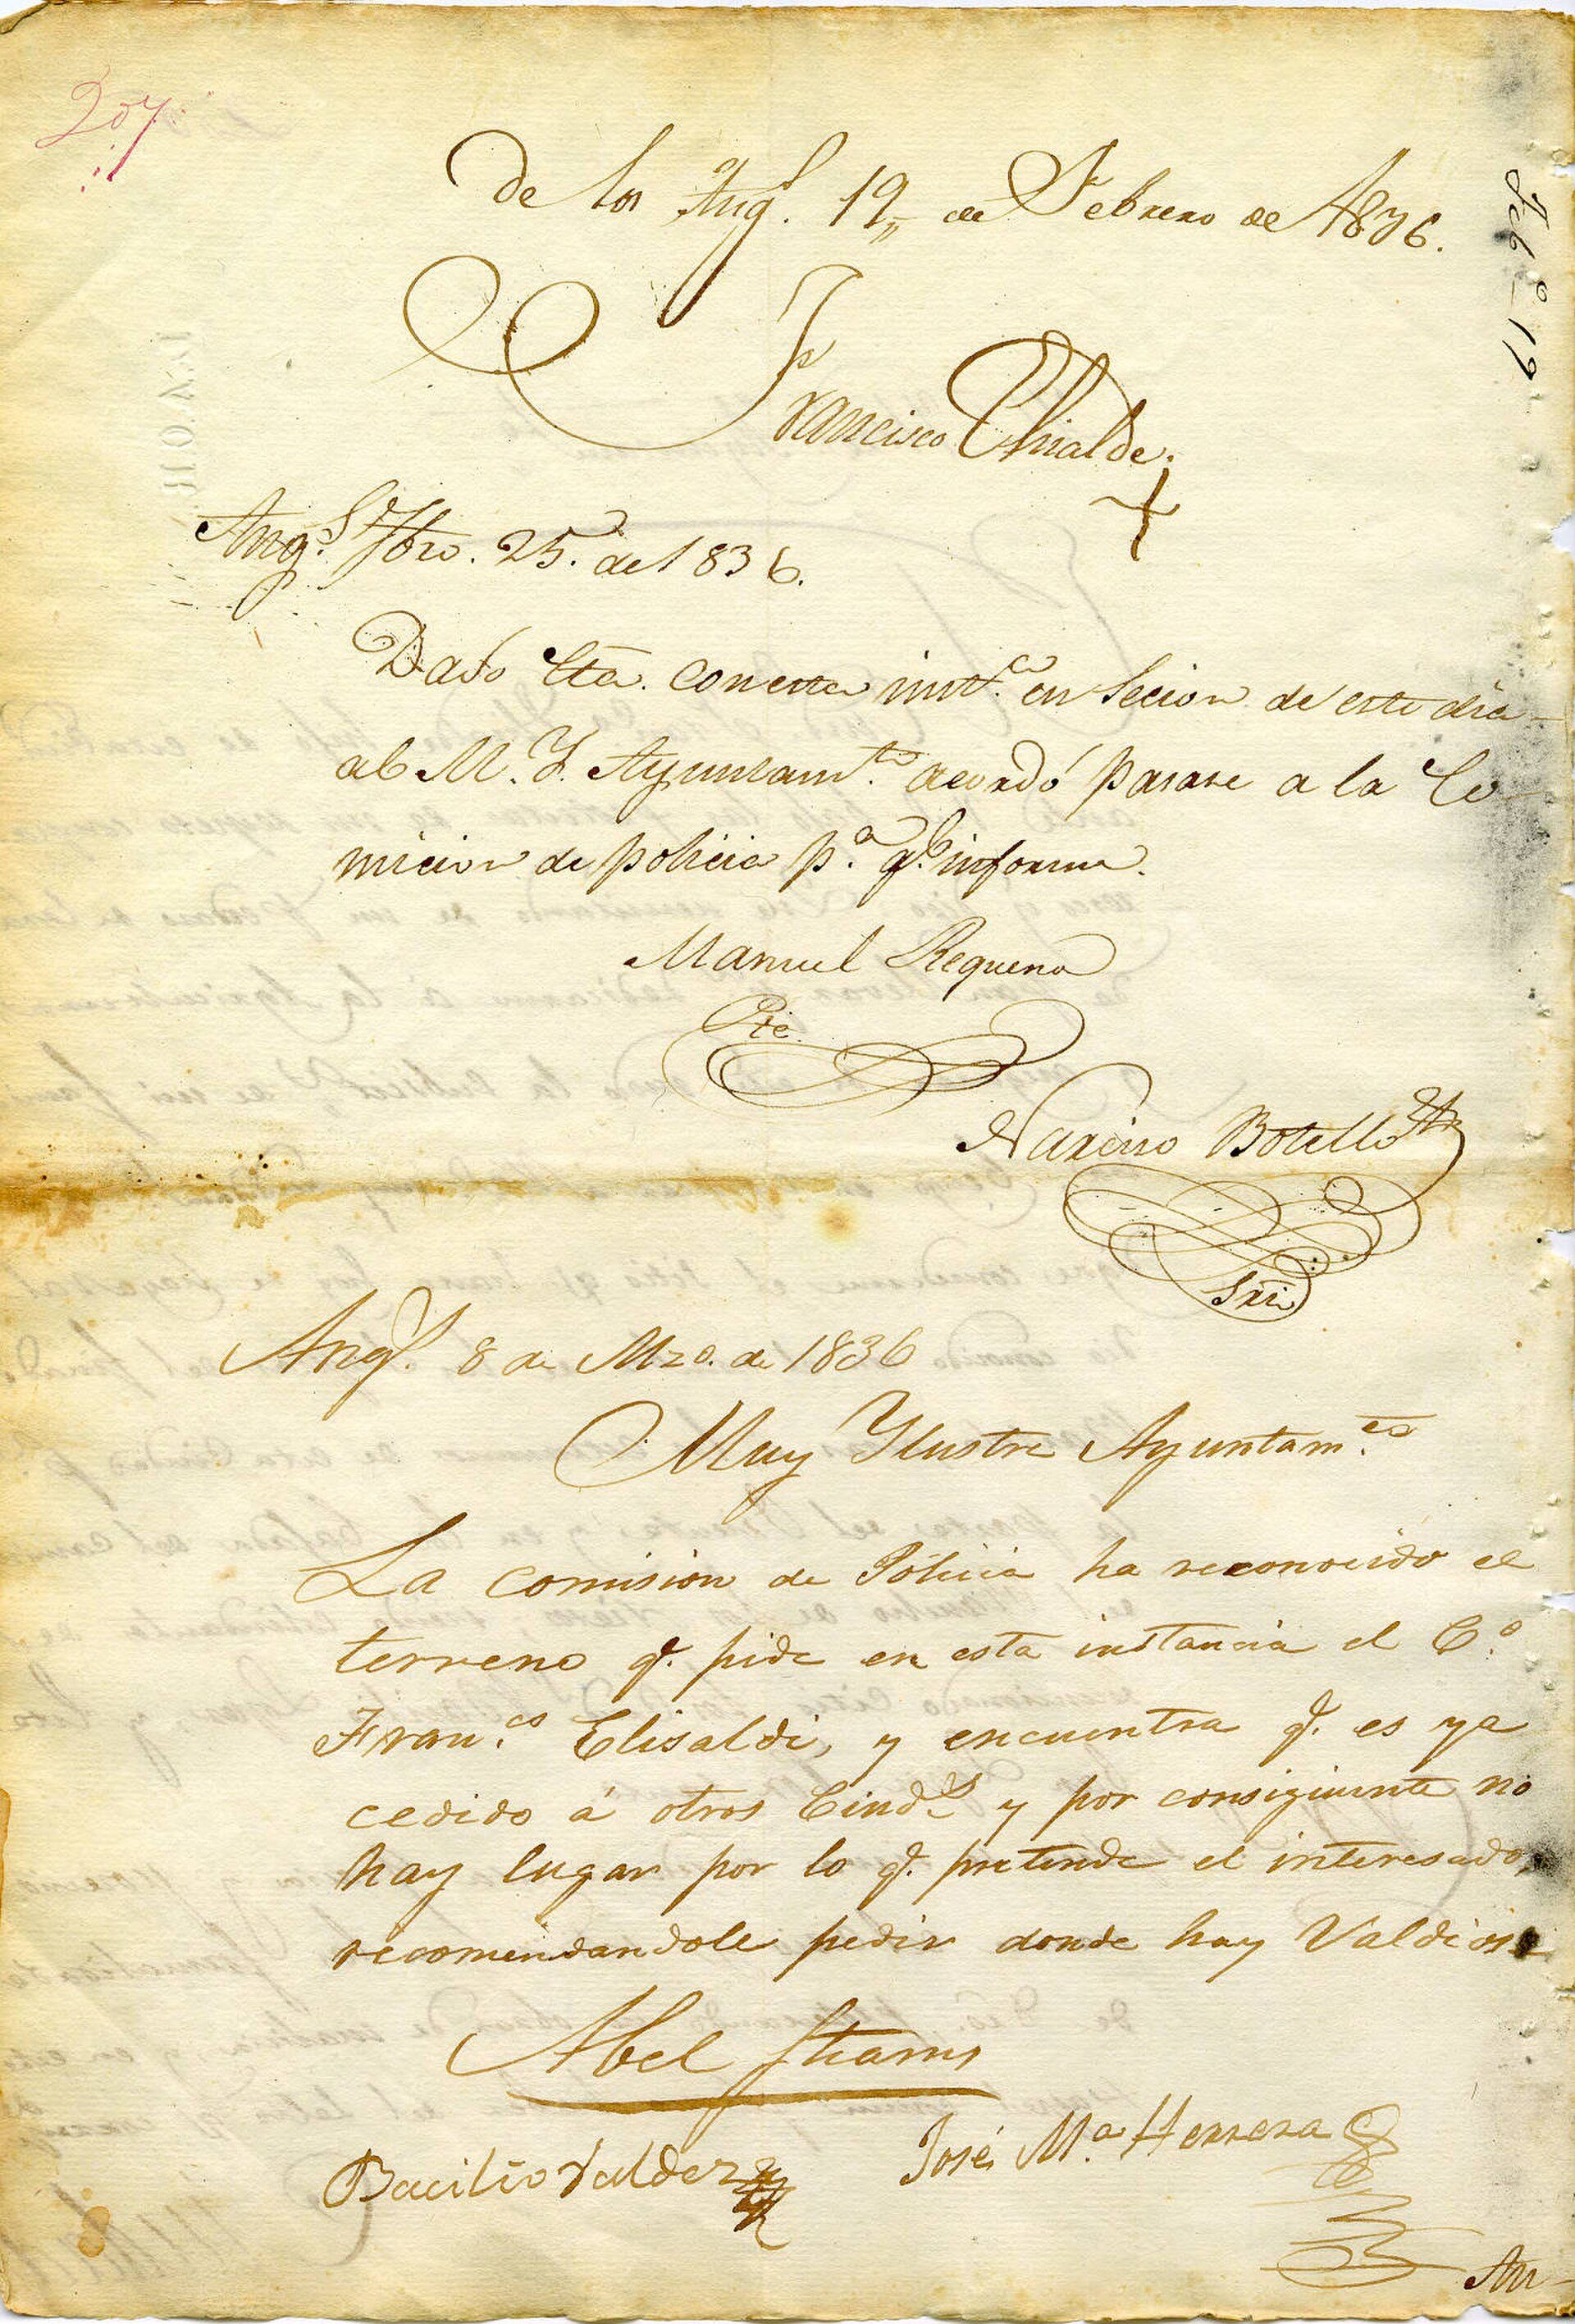 207
Feb.o 19
de los Ang.s 19 de Febrero de 1836.
Francisco Elisalde.
Ang.s Fbro. 25. de 1836.
Dado Cta. con esta inst.a en Secion de este dia
al M. Y. Ayuntam.to acordó pasase a la Co-
micion de policia p.a q.e informe.
Manuel Requena
Pte
Narciso Botello
Srio
Ang.s 8 de Mzo. de 1836
Muy Ylustre Ayuntam.to
La comision de Policia ha reconocido el
terreno q. pide en esta instancia el C.o
Fran.co Elisaldi, y encuentra q. es ya
cedido á otros Ciud.s y por consiguiente no
hay lugar por lo q. pretende el interesado,
recomendandole pedir donde hay Valdios
Abel Stearns
Bacilio Valdez
José M.a Herrera
An-